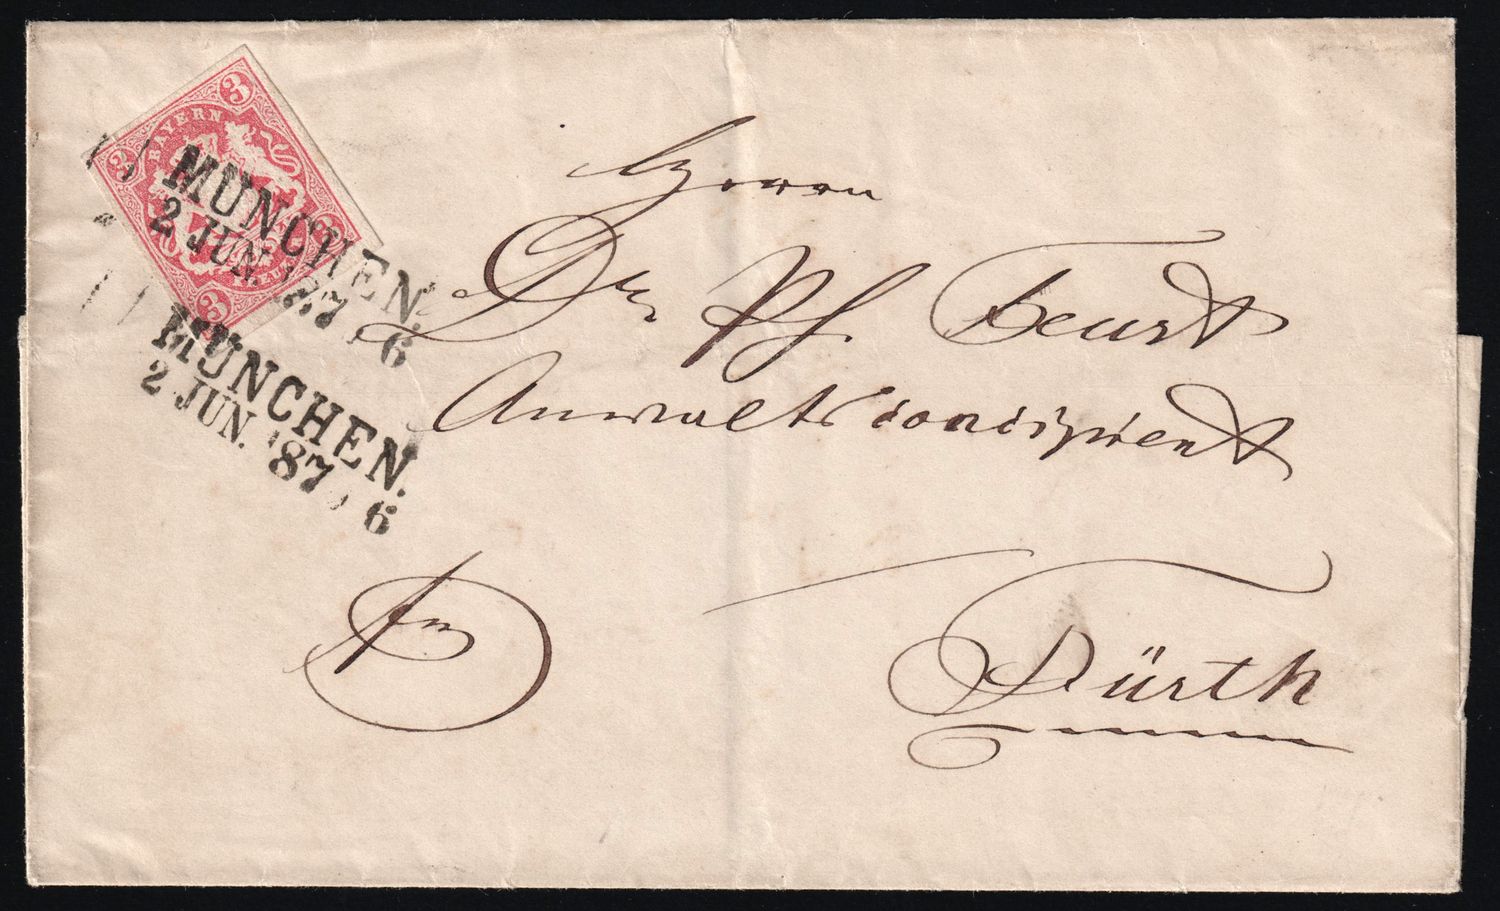 3
BAYERN
3
3
3
MÜNCHEN.
2 JUN. '87 6
MÜNCHEN.
2 JUN. '87 6
Herrn
Dr. Ph. Feust
Anwaltsconcipient
fr
Fürth